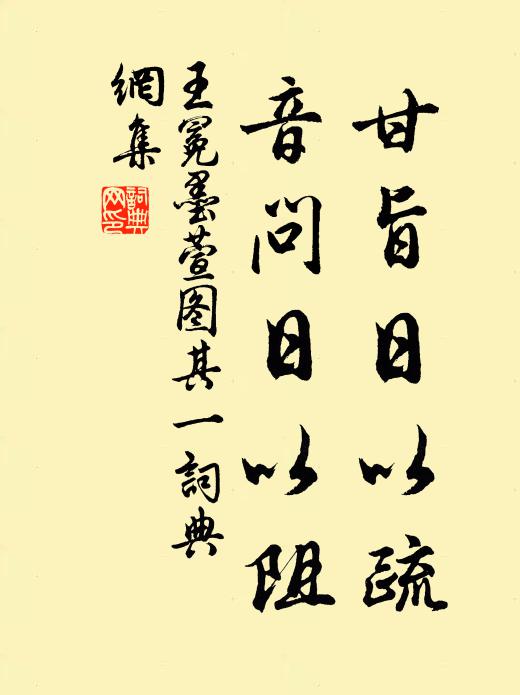 甘旨日以疏
音问日以阻
王冕墨萱图其一詞典
網集
詞典網印